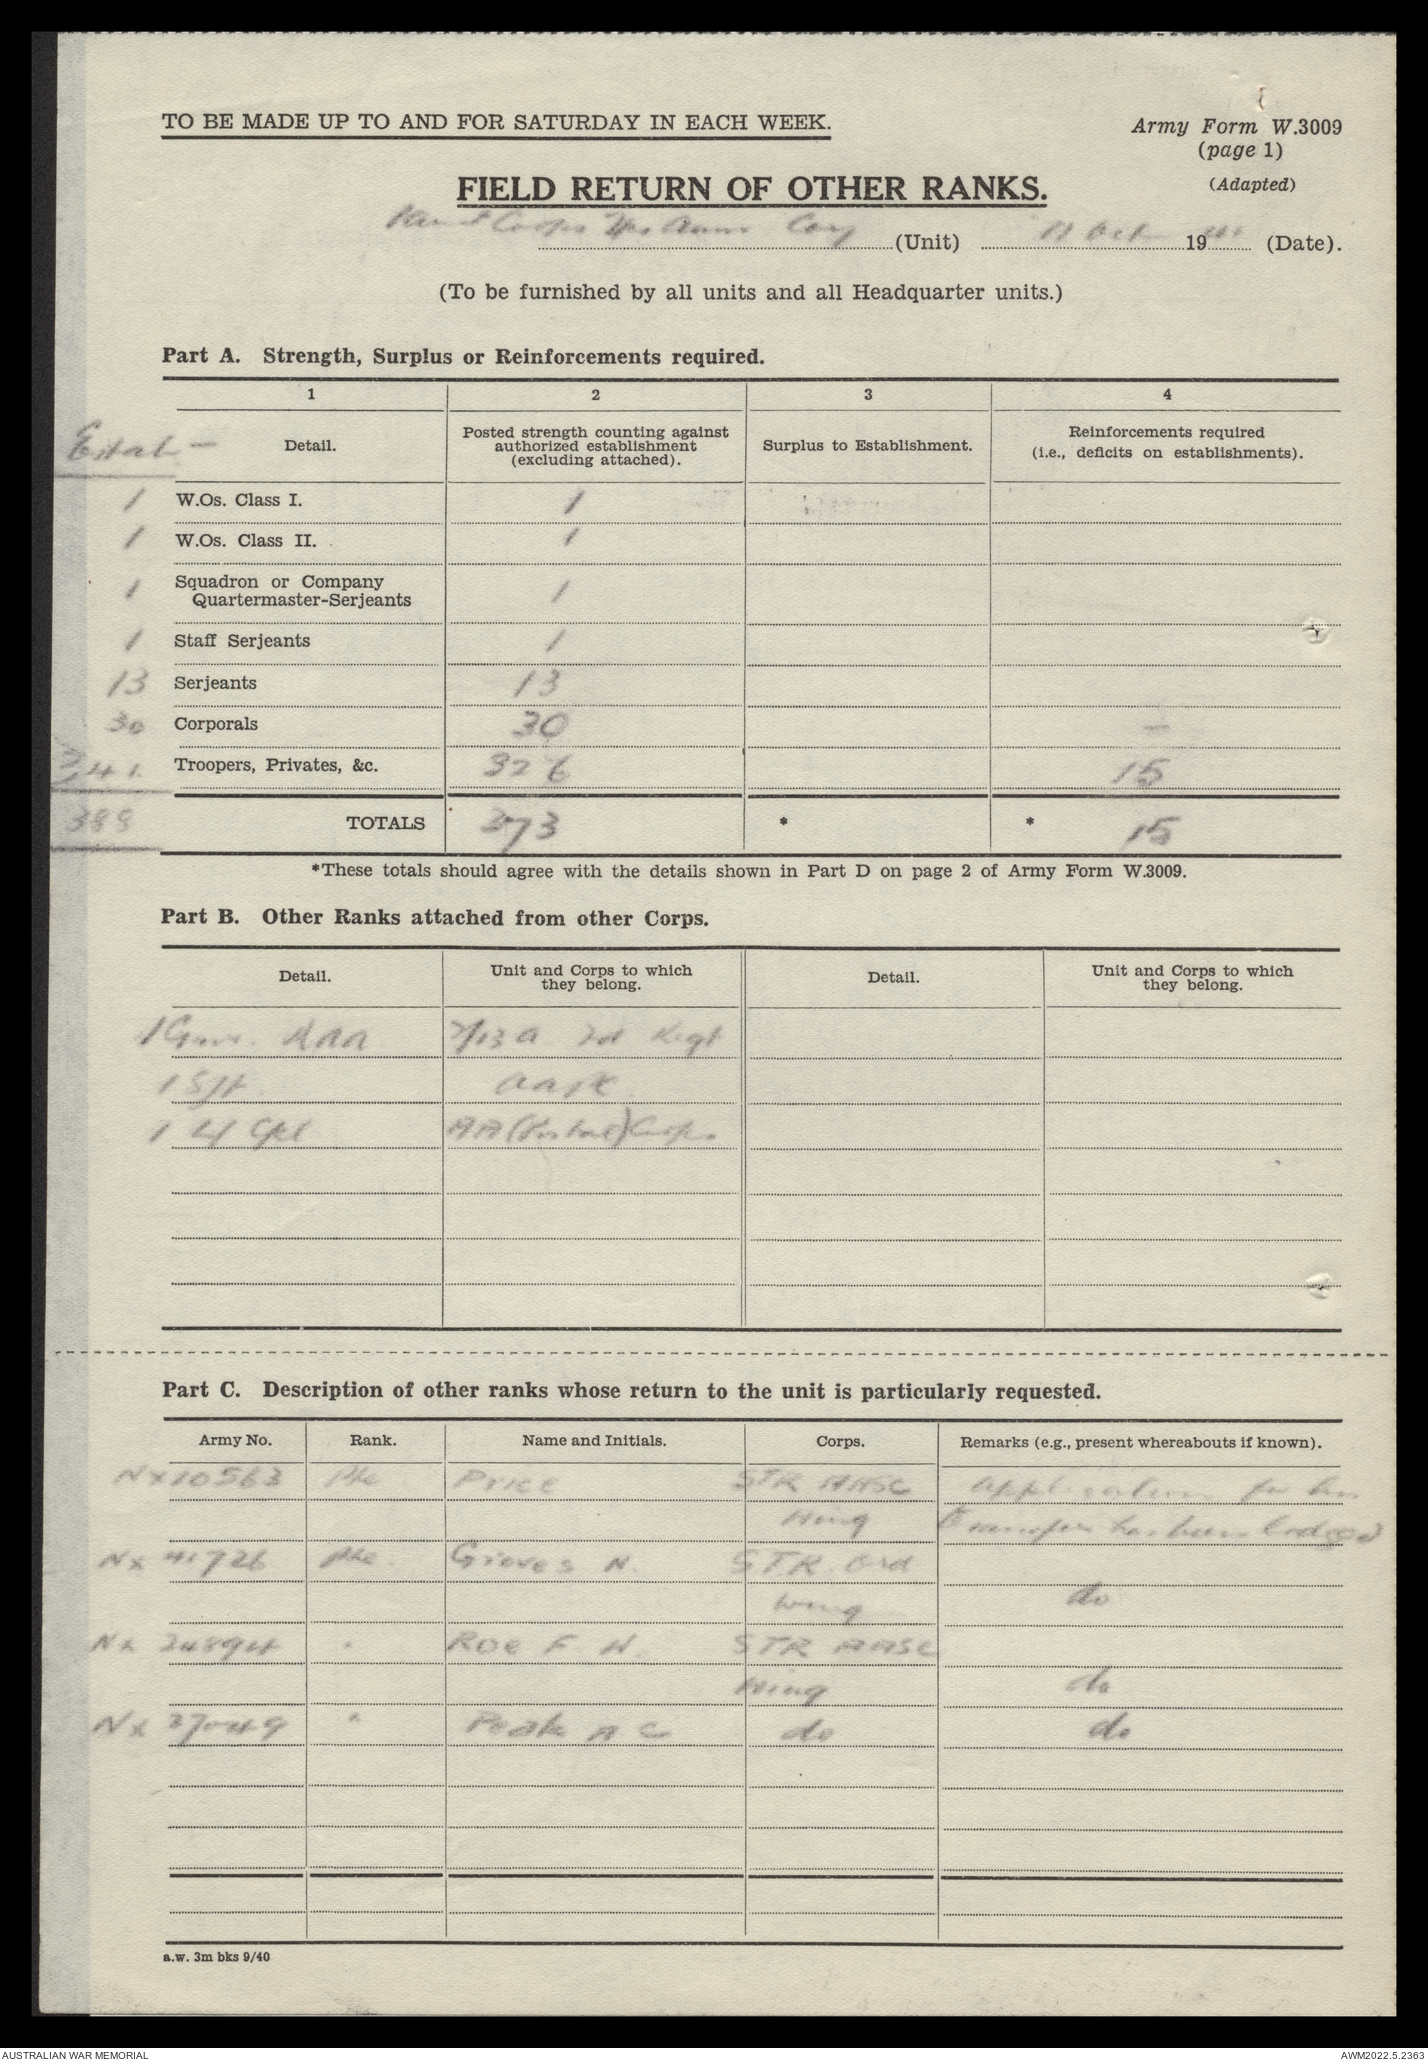 TO BE MADE UP TO AND FOR SATURDAY IN EACH WEEK.
Army Form W.3009
(page 1)
(Adapted)
FIELD RETURN OF OTHER RANKS.
Corps Coy (Unit) 11 Oct 19 (Date).
(To be furnished by all units and all Headquarter units.)
Part A. Strength, Surplus or Reinforcements required.
1 2 3 4
Estab - Detail. Posted strength counting against authorized establishment (excluding attached). Surplus to Establishment. Reinforcements required (i.e., deficits on establishments).
1 W.Os. Class I. 1
1 W.Os. Class II. 1
1 Squadron or Company Quartermaster-Serjeants 1
1 Staff Serjeants 1
13 Serjeants 13
30 Corporals 30 -
341 Troopers, Privates, &c. 326 15
388 TOTALS 373 * * 15
*These totals should agree with the details shown in Part D on page 2 of Army Form W.3009.
Part B. Other Ranks attached from other Corps.
Detail. Unit and Corps to which they belong. Detail. Unit and Corps to which they belong.
1 Gnr. RAA 2/13 A Fd Regt
1 Sjt
1 L/Cpl AA (Postal) Corps
Part C. Description of other ranks whose return to the unit is particularly requested.
Army No. Rank. Name and Initials. Corps. Remarks (e.g., present whereabouts if known).
NX10563 Pte Price STR AASC application for his
Wing transfer has been lodged
NX 41726 Pte. Groves N. STR. Ord
Wing do
NX 24894 " Roe F. H. STR AASC
Wing do
NX 27049 " Peak A C do do
a.w. 3m bks 9/40
AUSTRALIAN WAR MEMORIAL
AWM2022.5.2363